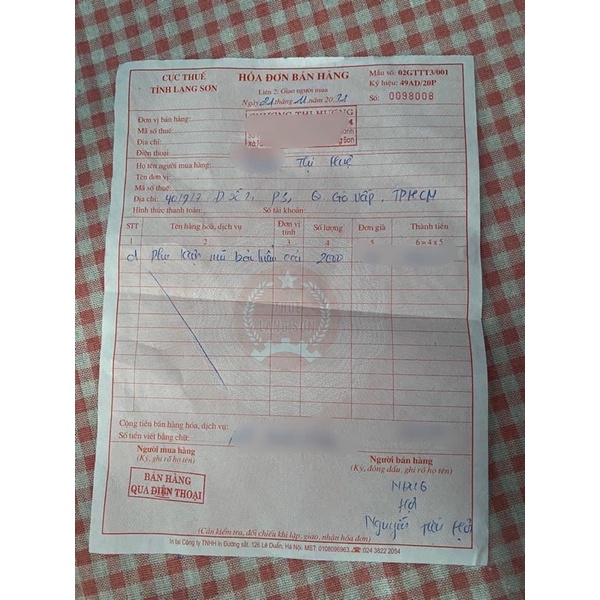 CỤC THUẾ
TỈNH LẠNG SƠN
HÓA ĐƠN BÁN HÀNG
Liên 2: Giao người mua
Ngày 21 tháng 11 năm 2021
Mẫu số: 02GTTT3/001
Ký hiệu: 49AD/20P
Số: 0098008
Đơn vị bán hàng:
Mã số thuế:
Địa chỉ:
Điện thoại
Họ tên người mua hàng: Thị Huê
Tên đơn vị:
Mã số thuế:
Địa chỉ: 40/9/7 P3, Q Gò Vấp, TPHCM
Hình thức thanh toán: Số tài khoản:
STT Tên hàng hóa, dịch vụ Đơn vị tính Số lượng Đơn giá Thành tiền
1 2 3 4 5 6 = 4 x 5
phụ kiện mũ bảo hiểm cái 2000
Cộng tiền bán hàng hóa, dịch vụ:
Số tiền viết bằng chữ:
Người mua hàng
(Ký, ghi rõ họ tên)
Người bán hàng
(Ký, đóng dấu, ghi rõ họ tên)
BÁN HÀNG
QUA ĐIỆN THOẠI
Nguyễn
(Cần kiểm tra, đối chiếu khi lập, giao, nhận hóa đơn)
In tại Công ty TNHH In Đường sắt. 126 Lê Duẩn, Hà Nội. MST: 0108096963 ☎ 024 3822 2054